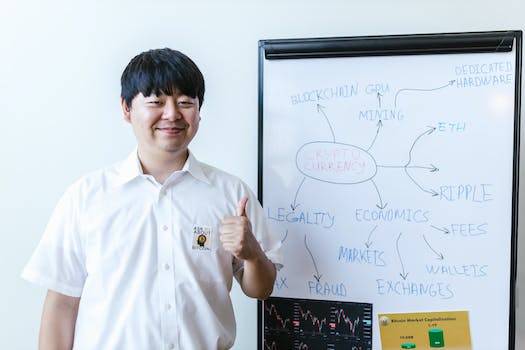 DEDICATED
HARDWARE
BLOCKCHAIN
GPU
MINING
ETH
CRYPTO
CURRENCY
RIPPLE
LEGALITY
ECONOMICS
FEES
MARKETS
WALLETS
FRAUD
EXCHANGES
Bitcoin Market Capitalization